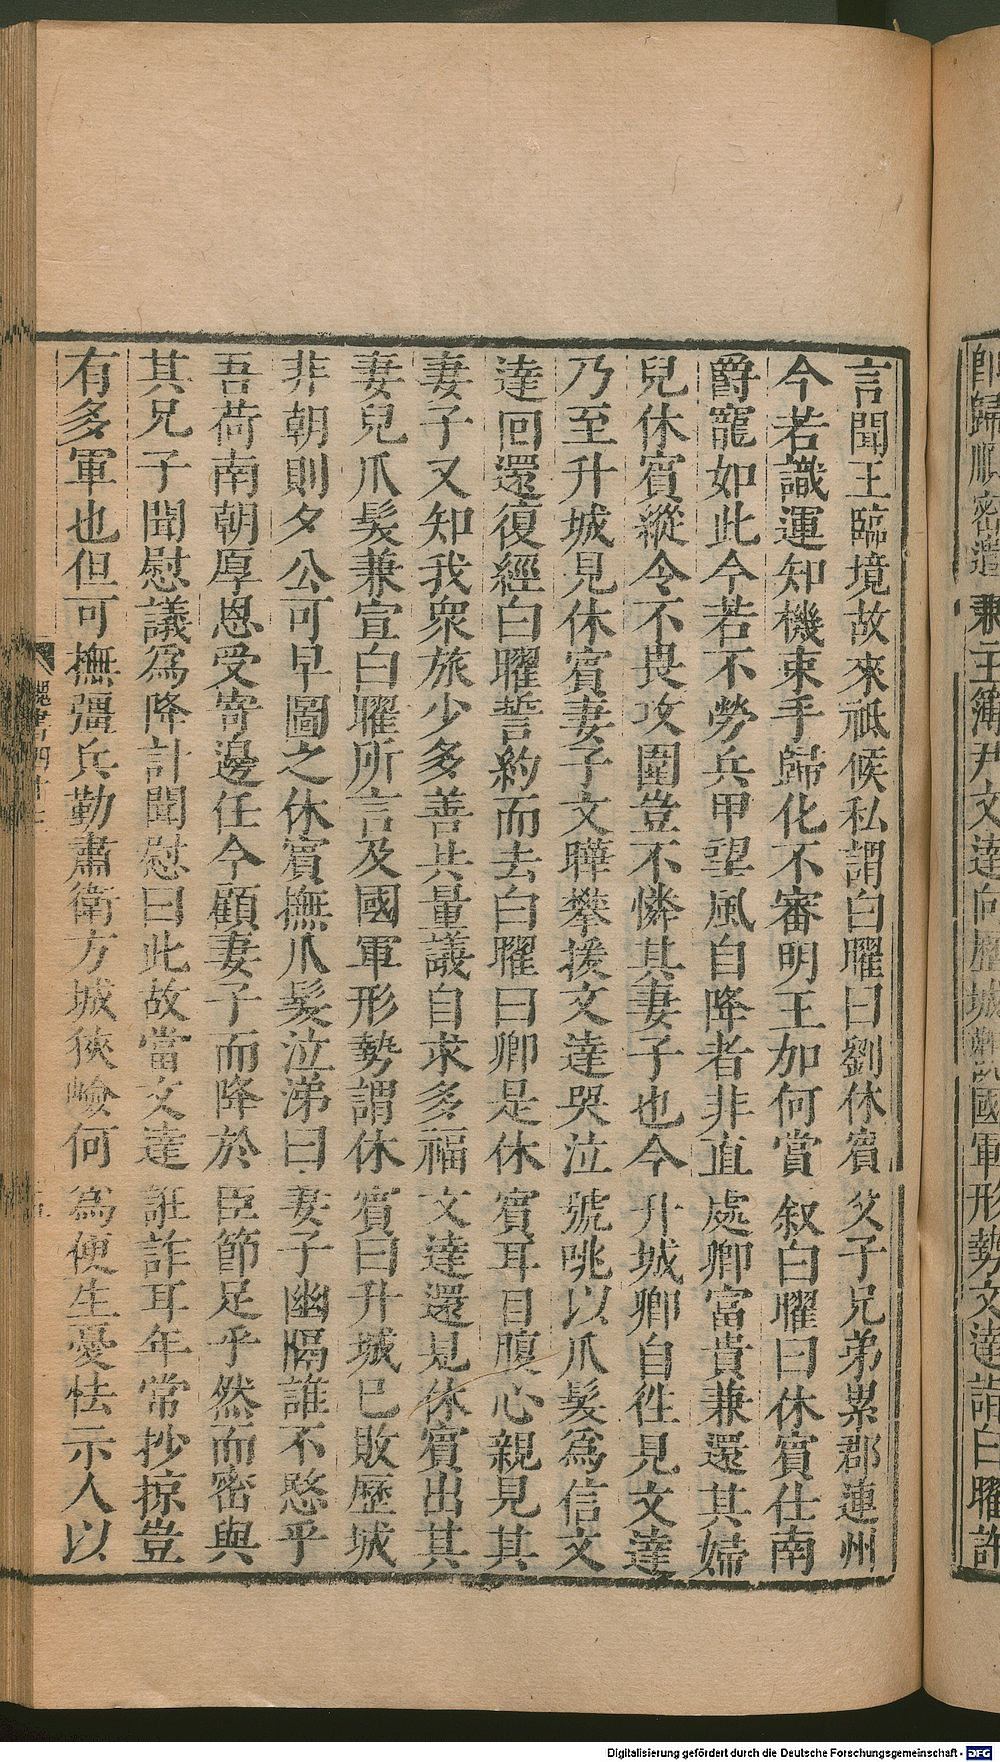 歸順密遣兼主簿尹文達向歷城觀國軍形勢文達詣白曜詐
言聞王臨境故來祗候私謂白曜曰劉休賓父子兄弟累郡連州
今若識運知機束手歸化不審明王加何賞叙白曜曰休賓仕南
爵寵如此今若不勞兵甲望風自降者非直處卿富貴兼還其婦
兒休賓縱令不畏攻圍豈不憐其妻子也今升城卿自往見文達
乃至升城見休賓妻子文曄攀援文達哭泣號咷以爪髮爲信文
達回還復經白曜誓約而去白曜曰卿是休賓耳目腹心親見其
妻子又知我衆旅少多善共量議自求多福文達還見休賓出其
妻兒爪髮兼宣白曜所言及國軍形勢謂休賓曰升城已敗歷城
非朝則夕公可早圖之休賓撫爪髮泣涕曰妻子幽隔誰不愍乎
吾荷南朝厚恩受寄邊任今顧妻子而降於臣節足乎然而密與
其兄子聞慰議爲降計聞慰曰此故當文達誑詐耳年常抄掠豈
有多軍也但可撫彊兵勒肅衛方城狹嶮何爲便生憂怯示人以
Digitalisierung gefördert durch die Deutsche Forschungsgemeinschaft - DFG